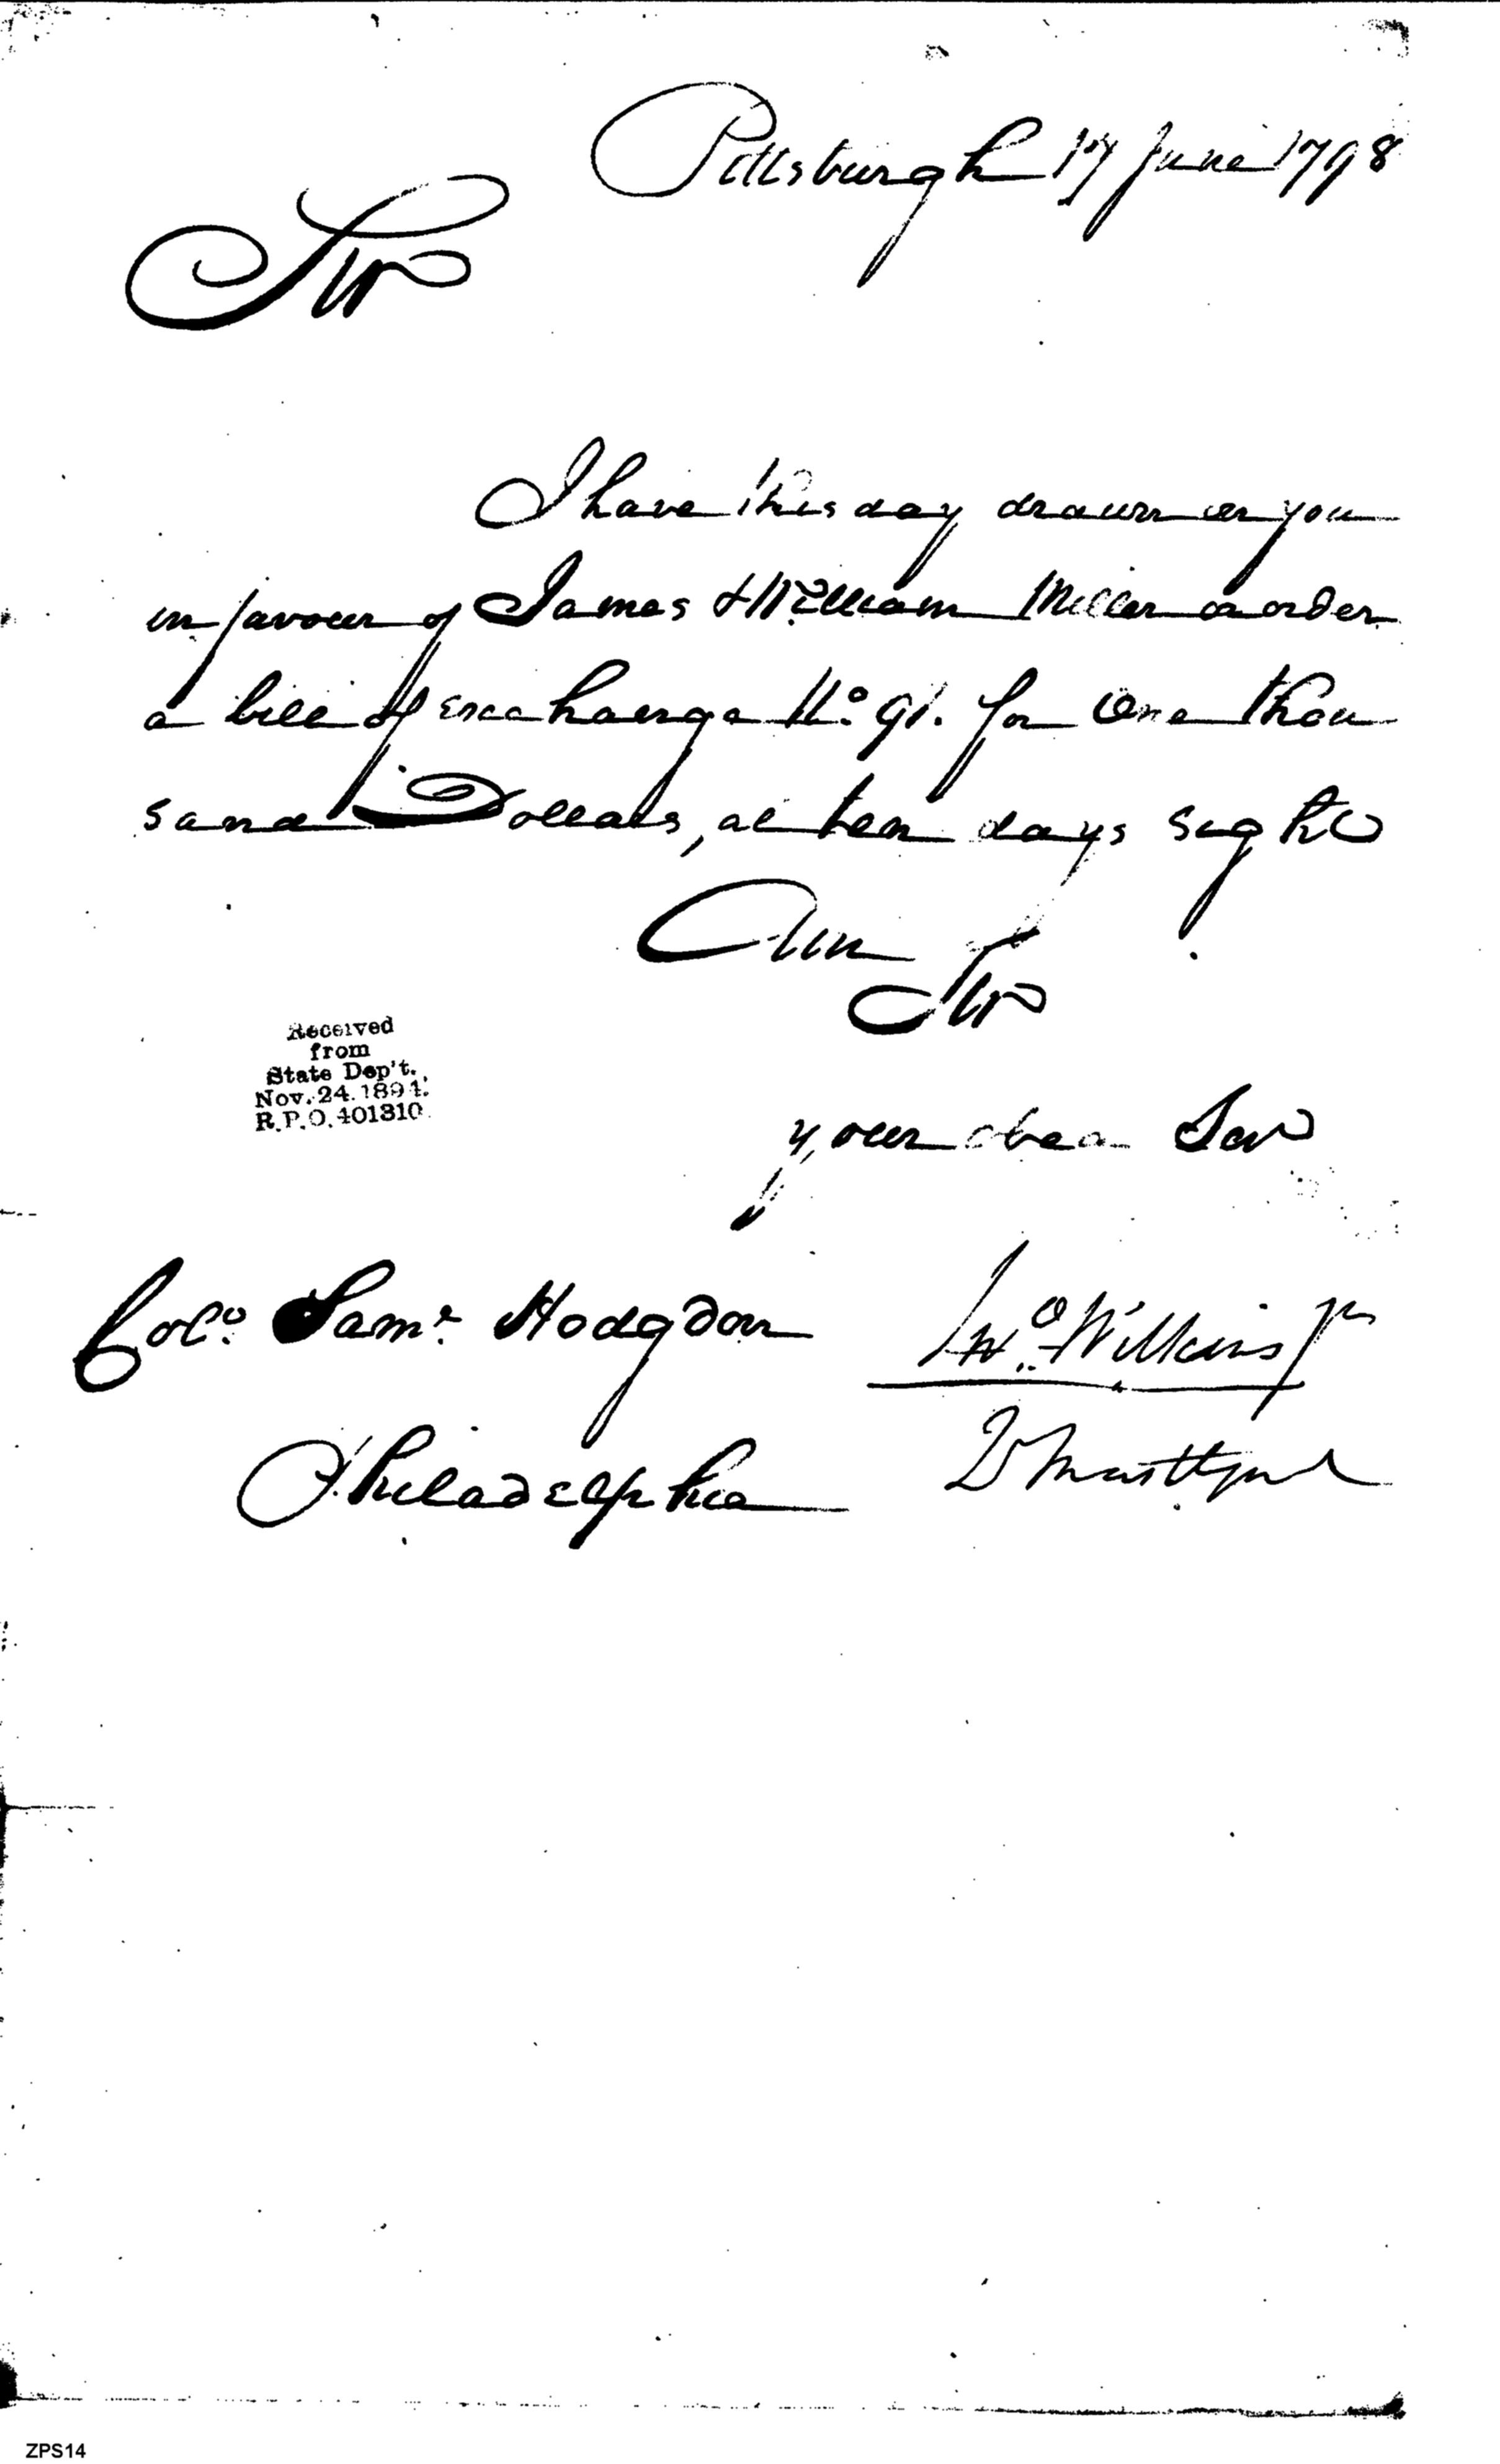 Pittsburgh 17 June 1798
Sir
I have this day drawn on you
in favour of James & William Miller or order
a bill of exchange No. 91. for One thou
sand Dollars, at ten days sight
I am Sir
your obed Ser
Colo. Saml. Hodgdon
Jno. Wilkins Jr
Philadelphia
Received
from
State Dep't.
Nov. 24. 1894.
R.P.O. 401310.
ZPS14